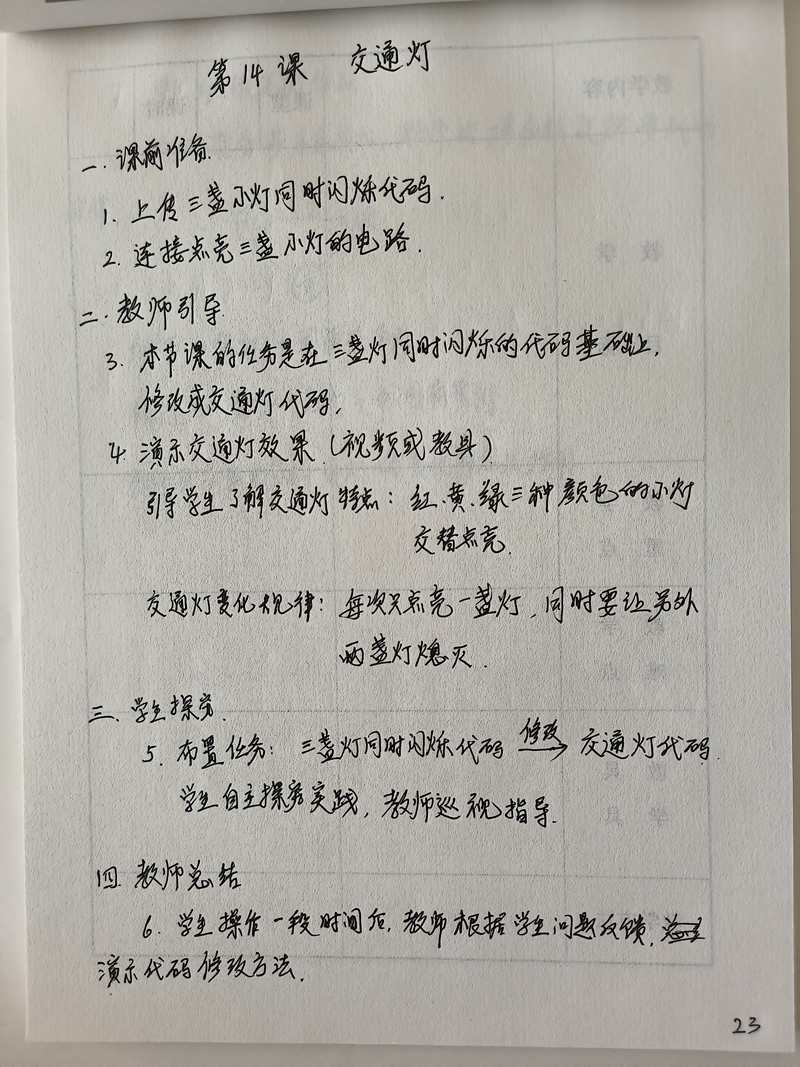 第14课 交通灯
一.课前准备.
1.上传三盏小灯同时闪烁代码.
2.连接点亮三盏小灯的电路.
二.教师引导
3.本节课的任务是在三盏灯同时闪烁的代码基础上,
修改成交通灯代码.
4.演示交通灯效果.(视频或教具)
引导学生了解交通灯特点:红、黄、绿三种颜色的小灯
交替点亮.
交通灯变化规律:每次只点亮一盏灯,同时要让另外
两盏灯熄灭.
三.学生探究.
5.布置任务:三盏灯同时闪烁代码 修改→ 交通灯代码.
学生自主探究实践,教师巡视指导.
四.教师总结
6.学生操作一段时间后,教师根据学生问题反馈,
演示代码修改方法.
23
教学内容
教学
重点
难点
教具
学具